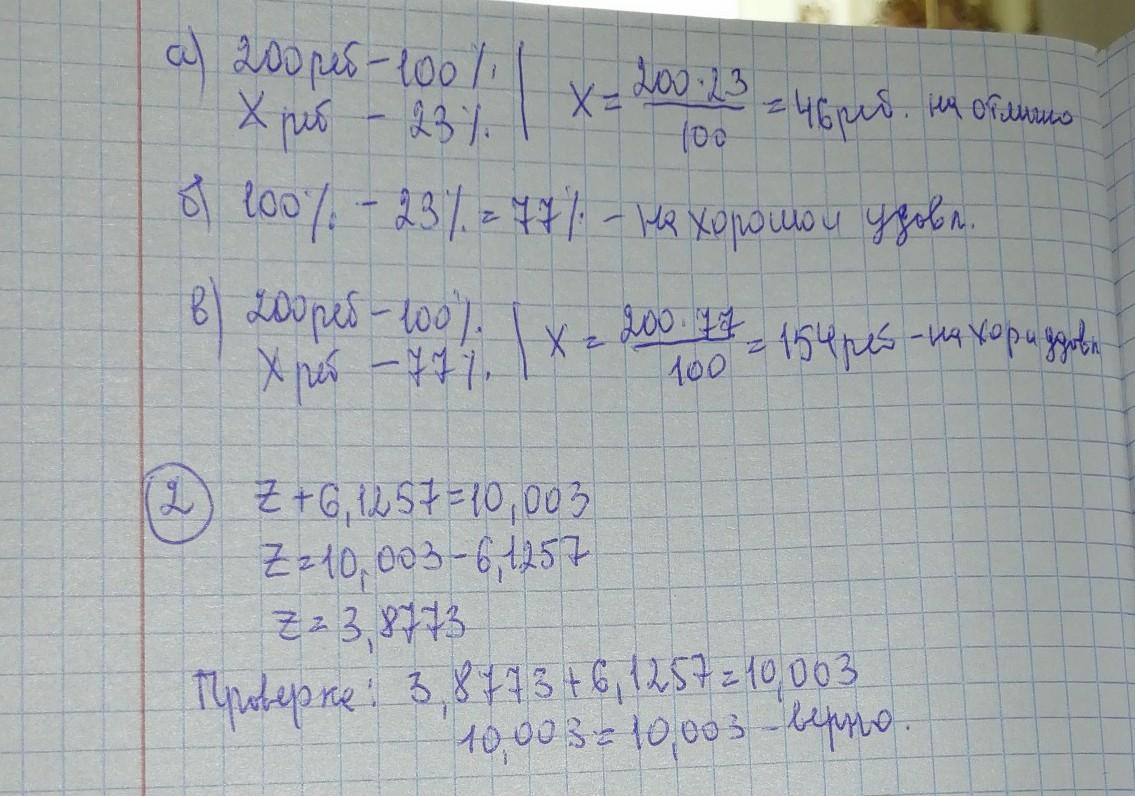 а) 200реб - 100% | x = 200·23/100 = 46реб. на отлично
X реб - 23%
б) 100% - 23% = 77% - на хорошо и удовл.
в) 200реб - 100% | x = 200·77/100 = 154реб - на хор и удовл
X реб - 77%
2 z + 6,1257 = 10,003
z = 10,003 - 6,1257
z = 3,8773
Проверка: 3,8773 + 6,1257 = 10,003
10,003 = 10,003 - верно.